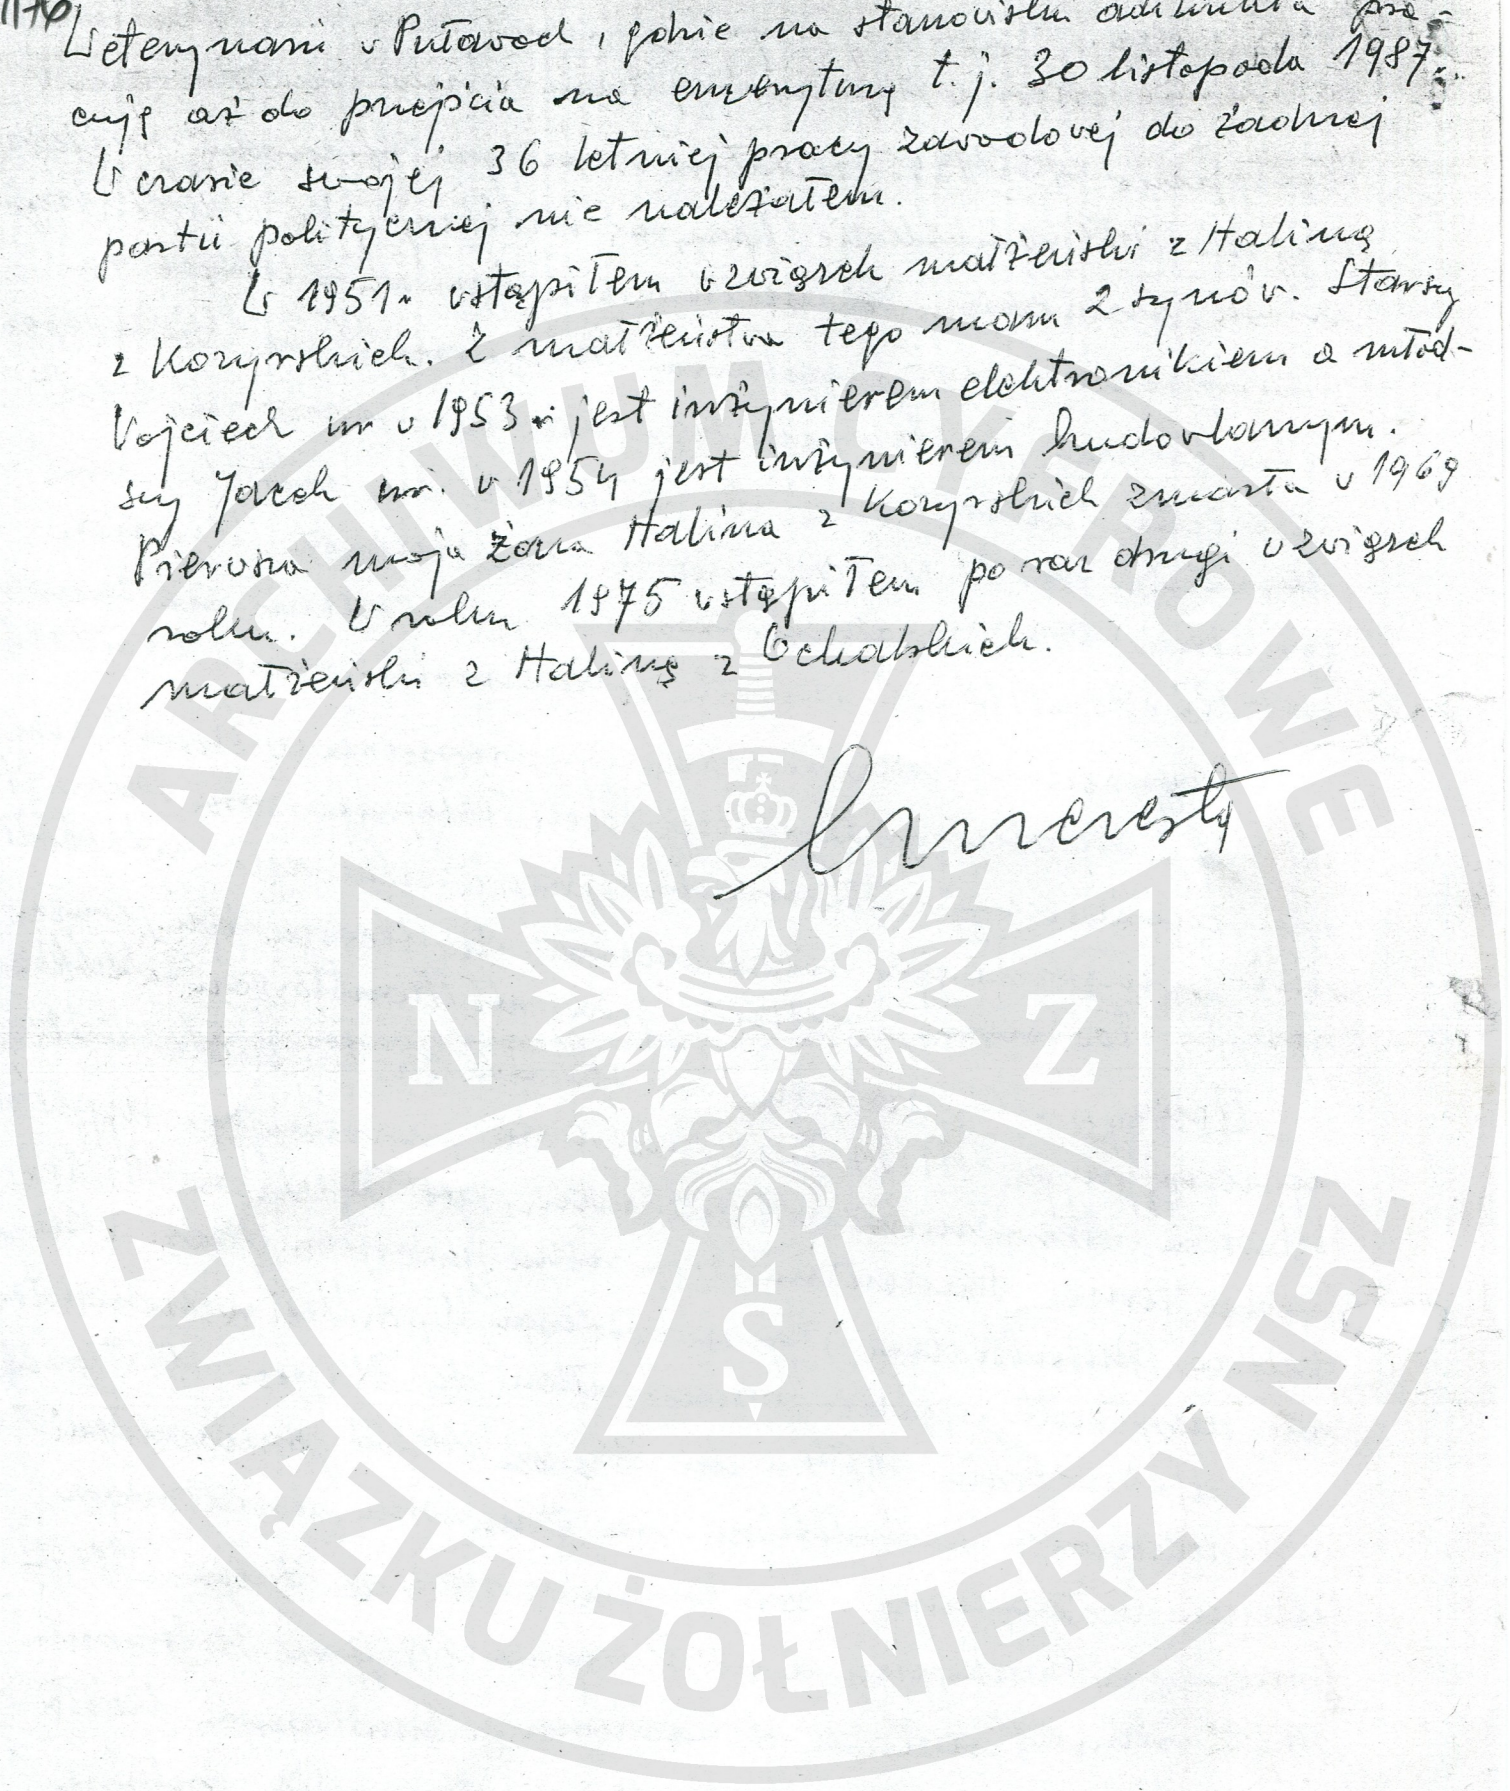 1176
Weterynarii w Puławach, gdzie na stanowisku adiunkta pra-
cuję aż do przejścia na emeryturę t.j. 30 listopada 1987.
W czasie swojej 36 letniej pracy zawodowej do żadnej
partii politycznej nie należałem.
W 1951r wstąpiłem w związek małżeński z Haliną
z Kozyrskich. Z małżeństwa tego mam 2 synów. Starszy
Wojciech ur w 1953r jest inżynierem elektronikiem a młod-
szy Jacek ur. w 1954 jest inżynierem budowlanym.
Pierwsza moja żona Halina z Kozyrskich zmarła w 1969
roku. W roku 1975 wstąpiłem po raz drugi w związek
małżeński z Haliną z Ochalskich.
ARCHIWUM CYFROWE
N Z
S
ZWIĄZKU ŻOŁNIERZY NSZ